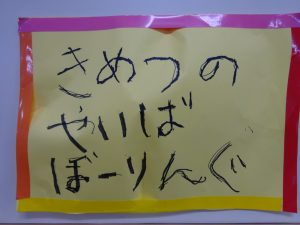 きめつの
やいば
ぼーりんぐ